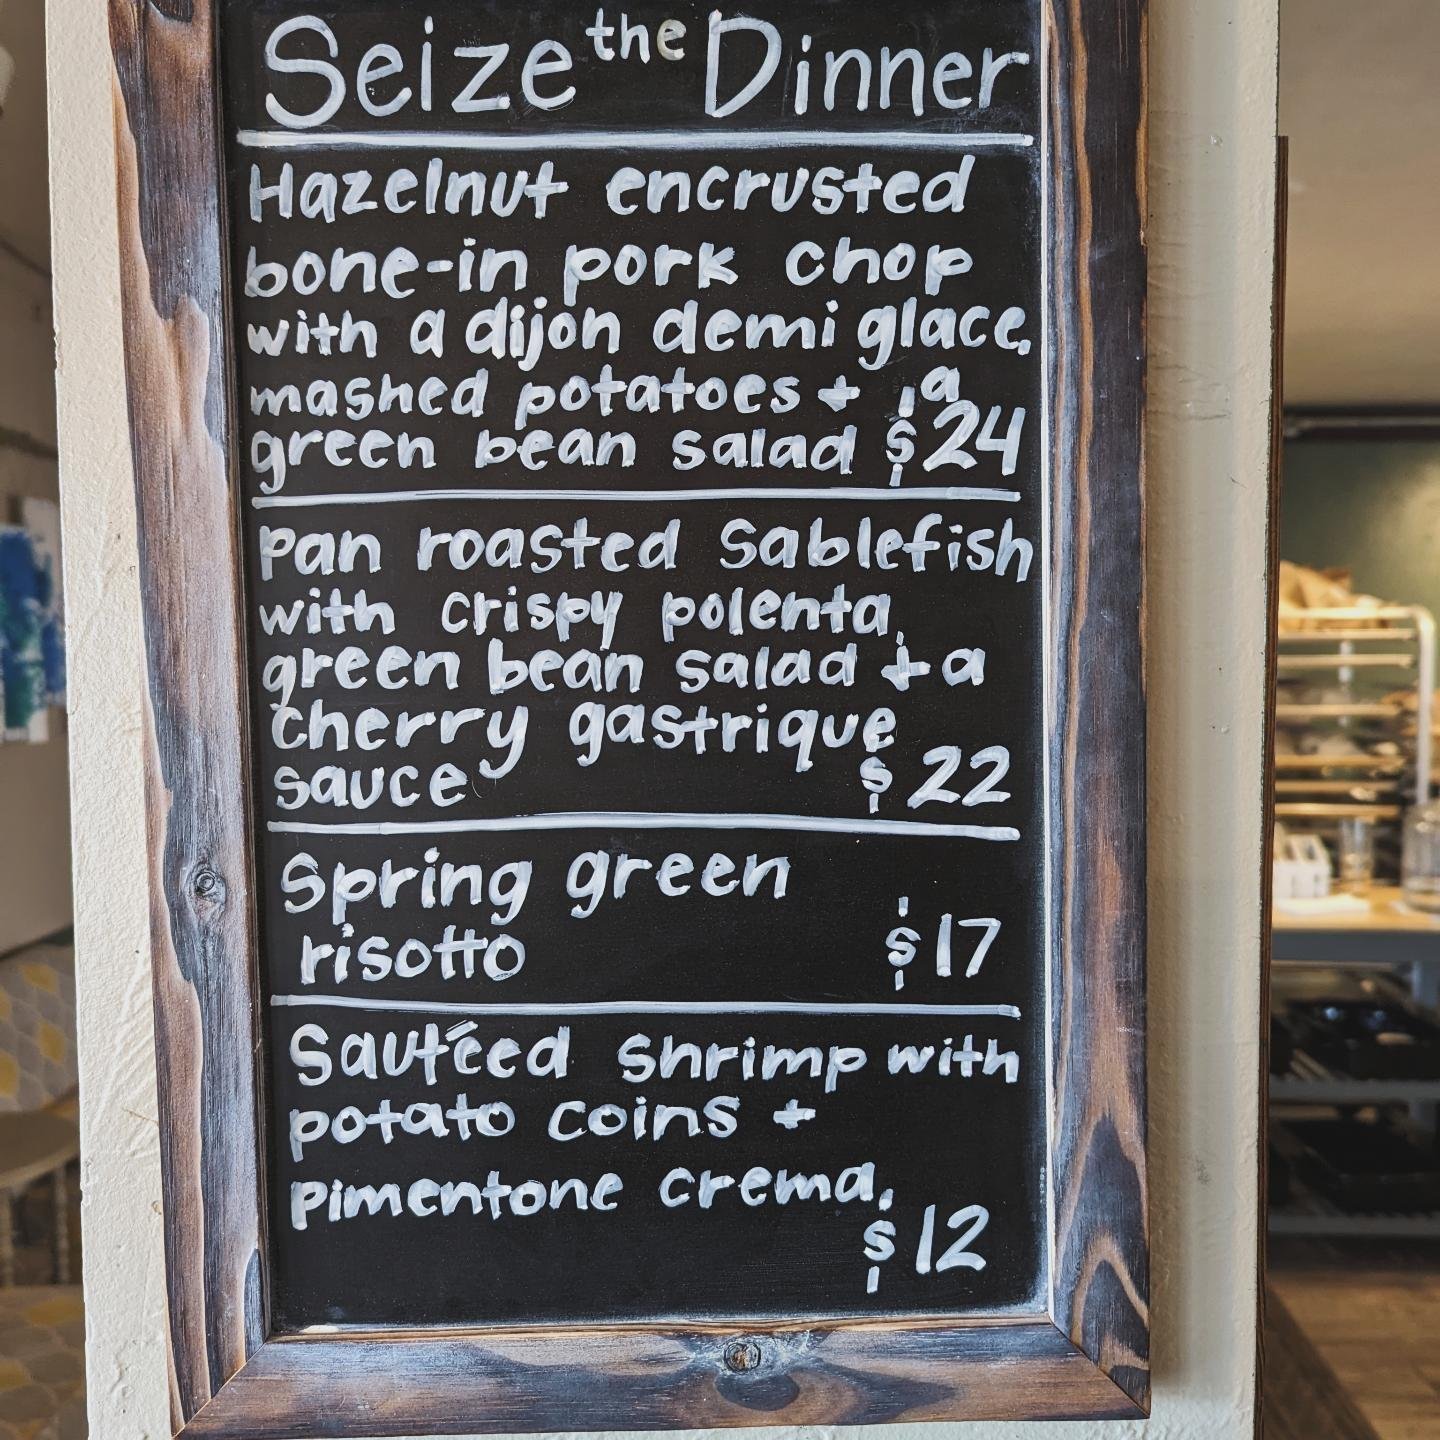 Seize the Dinner
Hazelnut encrusted
bone-in pork chop
with a dijon demi glace,
mashed potatoes + a
green bean salad $24
Pan roasted Sablefish
with crispy polenta,
green bean salad + a
cherry gastrique
sauce $22
Spring green
risotto $17
Sautéed shrimp with
potato coins +
pimentone crema,
$12